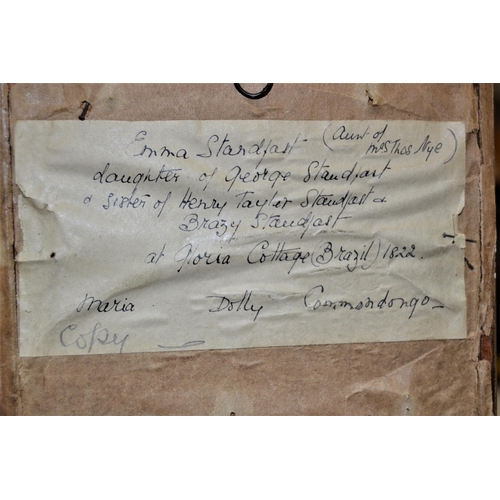 Emma Standfast (Aunt of
Mrs Thos Nye)
daughter of George Standfast
& Sister of Henry Taylor Standfast &
Brazy Standfast
at Gloria Cottage (Brazil) 1822.
Maria Dolly Commondongo
Copy